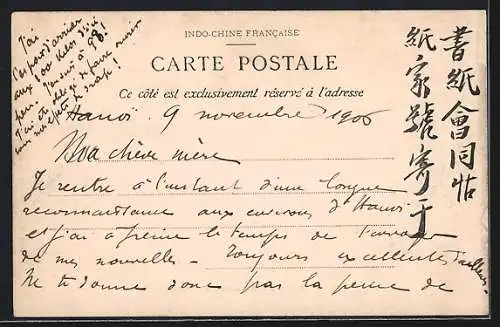 INDO-CHINE FRANÇAISE
CARTE POSTALE
Ce côté est exclusivement réservé à l'adresse
J'ai
l'espoir d'arriver
aux 100 kilos d'ici
peu. J'en suis à 98!
J'ai été obligé de faire
mes effets de drap!
Hanoï 9 novembre 1906
Ma chère mère
Je rentre à l'instant d'une longue
reconnaissance aux environs d'Hanoï
et j'ai à peine le temps de t'envoyer
de mes nouvelles - Toujours excellentes d'ailleurs -
Ne te donne donc pas la peine de
書紙會同帖
紙家號寄于